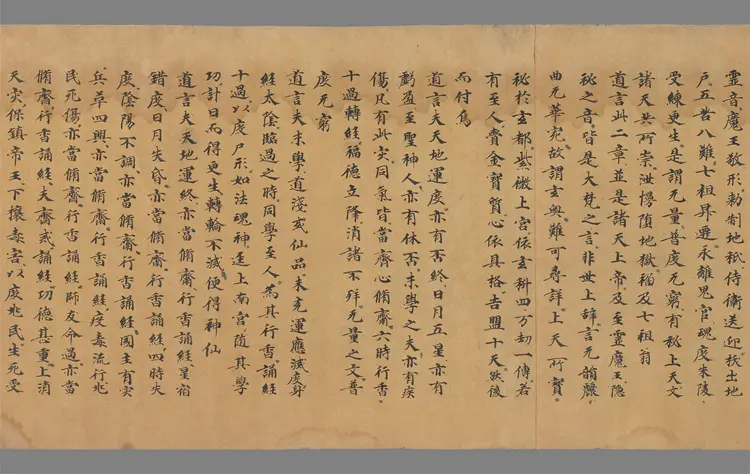 靈音魔王敬形勑制地祇侍衛送迎拔出地
戶五苦八難七祖昇遷永離鬼官魂度朱陵
受練更生是謂无量普度无窮有秘上天文
諸天共所崇泄慢墮地獄禍及七祖翁
道言此二章並是諸天上帝及至靈魔王隱
秘之音皆是大梵之言非世上辞言无韻麗
曲无華宛故謂玄奥難可尋詳上天所寶
秘於玄都紫微上宮依玄科四万劫一傳若
有至人賫金寶質心依具格告盟十天然後
而付焉
道言夫天地運度亦有否終日月五星亦有
虧盈至聖神人亦有休否末學之夫亦有疾
傷凡有此灾同氣皆當齊心脩齋六時行香
十過轉經福德立降消諸不祥无量之文普
度无窮
道言夫末學道淺或仙品未充運應滅度身
經太陰臨過之時同學至人為其行香誦經
十過以度尸形如法魂神逕上南宮隨其學
功計日而得更生轉輪不滅便得神仙
道言夫天地運終亦當脩齋行香誦經星宿
錯度日月失昏亦當脩齋行香誦經四時失
度陰陽不調亦當脩齋行香誦經國主有灾
兵革四興亦當脩齋行香誦經疫毒流行兆
民死傷亦當脩齋行香誦經師友命過亦當
脩齋行香誦經夫齋戒誦經功德甚重上消
天灾保鎮帝王下攘毒害以度兆民生死受